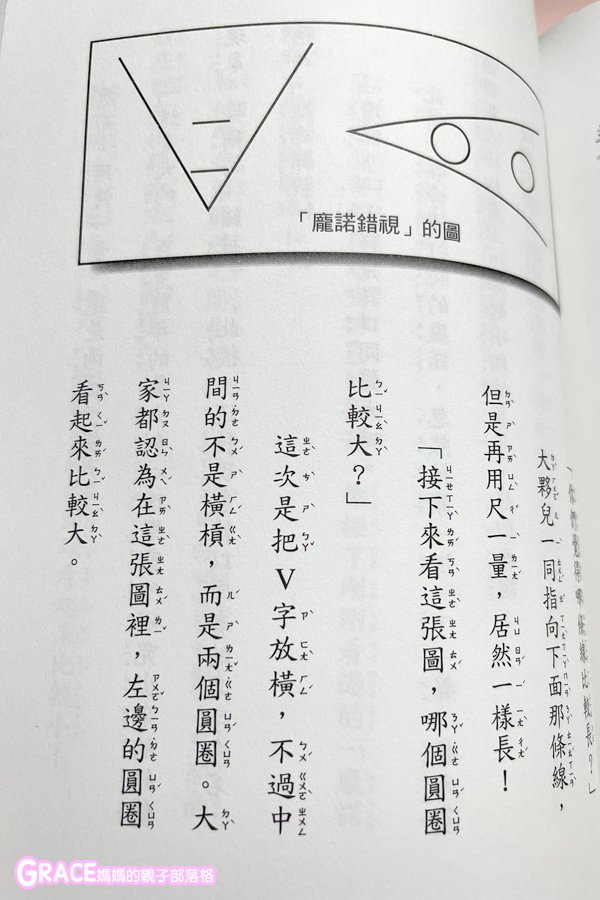 「龐諾錯視」的圖
「你們覺得哪條線比較長？」
大夥兒一同指向下面那條線，
但是再用尺一量，居然一樣長！
「接下來看這張圖，哪個圓圈
比較大？」
這次是把V字放橫，不過中
間的不是橫槓，而是兩個圓圈。大
家都認為在這張圖裡，左邊的圓圈
看起來比較大。
GRACE媽媽的親子部落格